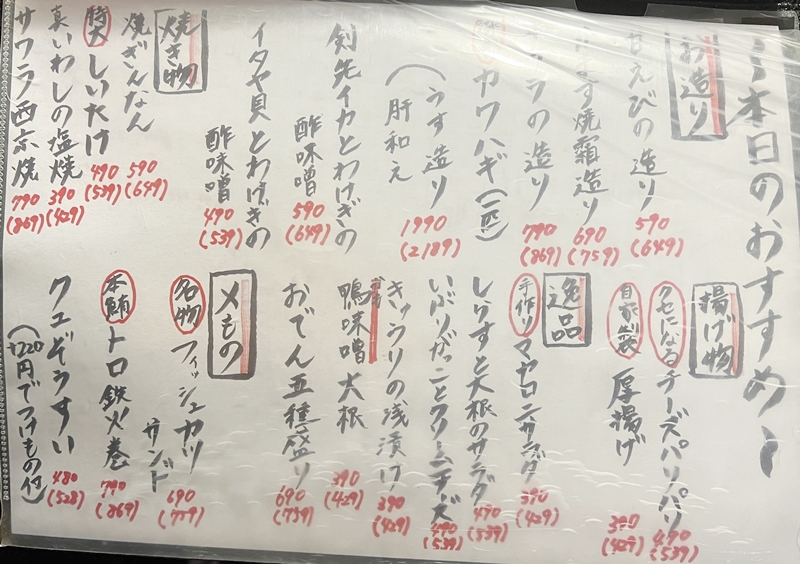 ～本日のおすすめ～
お造り
甘えびの造り 590 (649)
焼霜造り 690 (759)
の造り 790 (869)
カワハギ(一匹)
うす造り 1990 (2189)
(肝和え
剣先イカとわけぎの
酢味噌 590 (649)
イタヤ貝とわけぎの
酢味噌 490 (539)
焼き物
焼ぎんなん 590 (649)
特大 しいたけ 490 (539)
真いわしの塩焼 390 (429)
サワラ西京焼 790 (869)
揚げ物
クセになる チーズパリパリ 490 (539)
自家製 厚揚げ 390 (429)
逸品
手作り マカロニサラダ 390 (429)
しらすと大根のサラダ 490 (539)
いぶりがっことクリームチーズ 490 (539)
キュウリの浅漬け 390 (429)
鴨味噌大根 390 (429)
おでん五種盛り 690 (739)
〆もの
名物 フィッシュカツ
サンド 690 (759)
本鮪 トロ鉄火巻 790 (869)
クエぞうすい 480 (528)
(+220円でつけもの付)